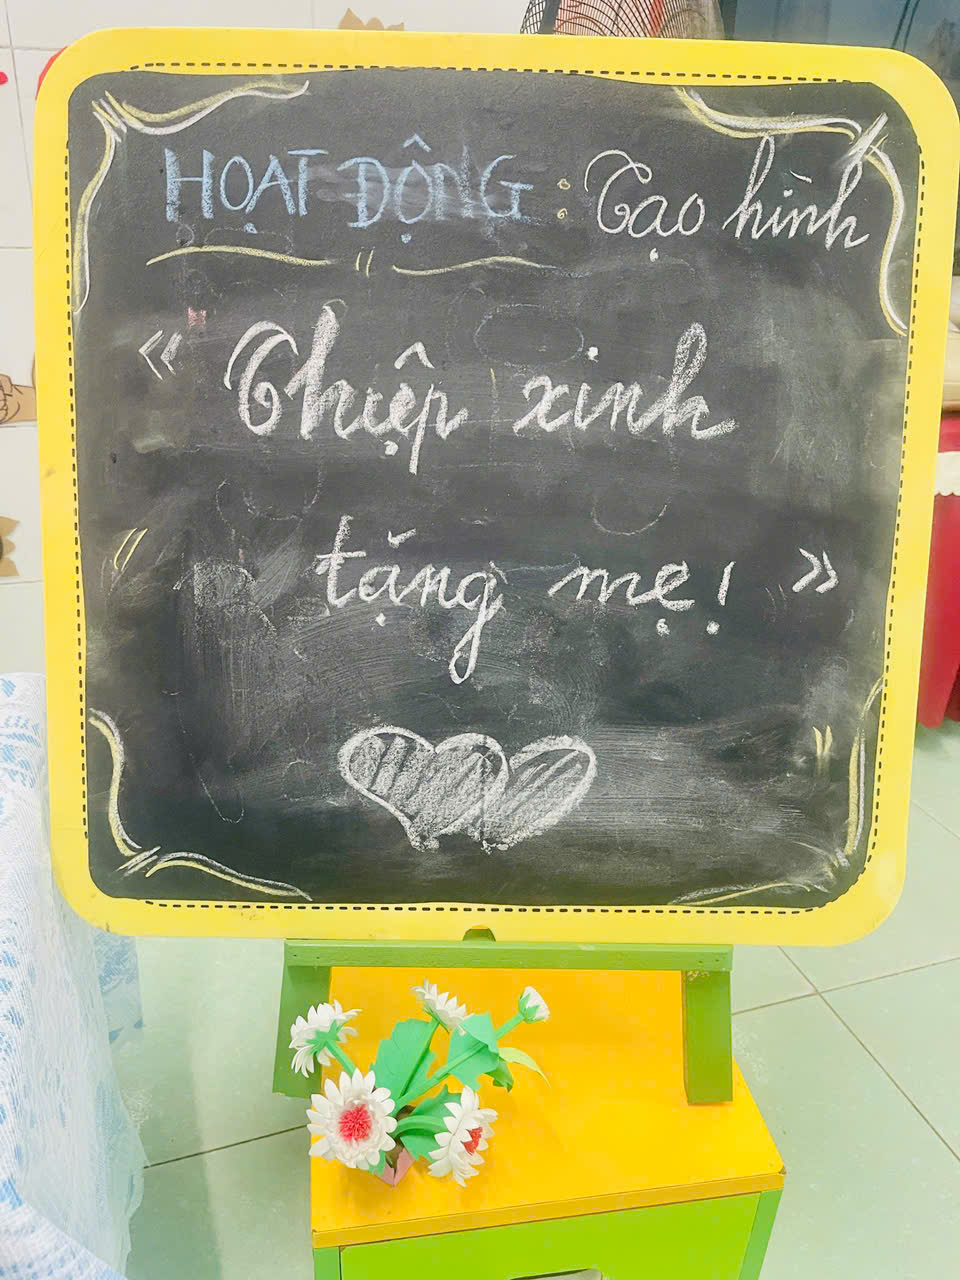 HOẠT ĐỘNG : Tạo hình
« Thiệp xinh
tặng mẹ! »